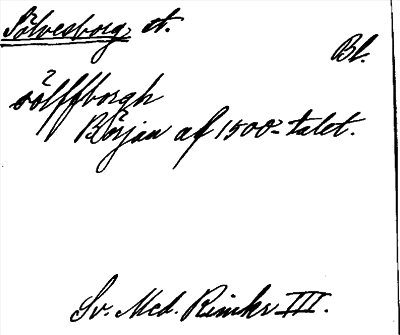 Sölvesborg st.
Bl.
sölffborgh
Början af 1500-talet.
Sv. Med. Rimkr III.